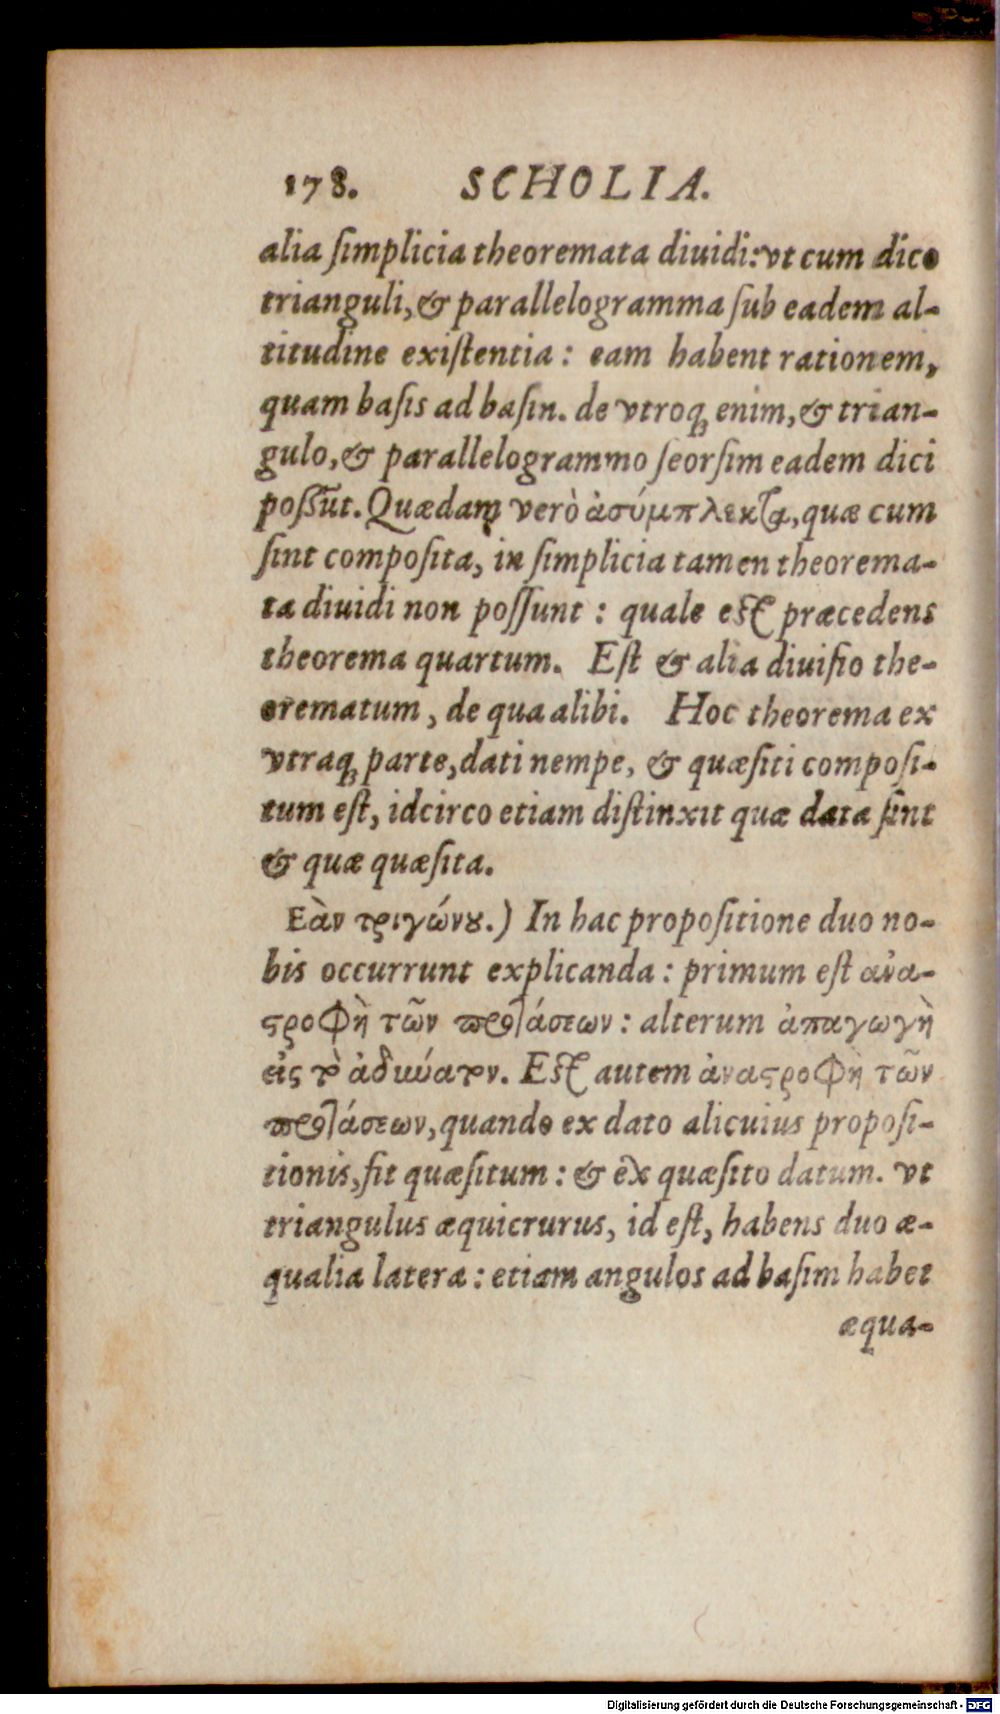 178. SCHOLIA.
alia ſimplicia theoremata diuidi: vt cum dico
trianguli, & parallelogramma ſub eadem al-
titudine exiſtentia : eam habent rationem,
quam baſis ad baſin. de vtroq; enim, & trian-
gulo, & parallelogrammo ſeorſim eadem dici
poſſũt. Quædam verò ἀσύμπλεκτα, quæ cum
ſint compoſita, in ſimplicia tamen theorema-
ta diuidi non poſſunt : quale eſt præcedens
theorema quartum. Eſt & alia diuiſio the-
orematum, de qua alibi. Hoc theorema ex
vtraq; parte, dati nempe, & quæſiti compoſi-
tum eſt, idcirco etiam diſtinxit quæ data ſint
& quæ quæſita.
Εὰν τριγώνȣ.) In hac propoſitione duo no-
bis occurrunt explicanda : primum eſt ανα-
ϛροφὴ τῶν προτάσεων : alterum ἀπαγωγὴ
εἰς τὸ ἀδιωύατον. Eſt autem ἀναϛροφὴ τῶν
προτάσεων, quando ex dato alicuius propoſi-
tionis, fit quæſitum : & ex quæſito datum. vt
triangulus æquicrurus, id eſt, habens duo æ-
qualia latera : etiam angulos ad baſim habet
æqua-
Digitalisierung gefördert durch die Deutsche Forschungsgemeinschaft - DFG